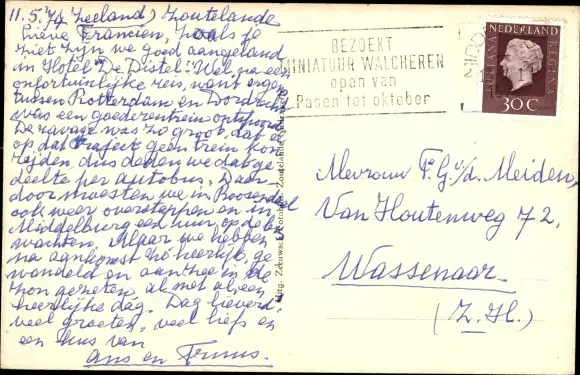 11.5.'74 Zeeland, Zoutelande
Lieve Francien, Zoals je
ziet zijn we goed aangeland
in Hotel "De Distel". Wel na een
onfortuinlijke reis, want ergens
tussen Rotterdam en Dordrecht
was een goederentrein ontspoord.
De ravage was zo groot, dat er
op dat traject geen trein kon
rijden, dus deden we dat ge-
deelte per autobus. Daar-
door moesten we in Roosendaal
ook weer overstappen en in
Middelburg een uur op de bus
wachten. Maar we hebben
na aankomst zo heerlijk ge-
wandeld en aan zee in de
zon gezeten, al met al een
heerlijke dag. Dag lieverd,
veel groeten, veel liefs en
een kus van
Ans en Truus.
BEZOEKT
MINIATUUR WALCHEREN
open van
Pasen tot oktober
NEDERLAND
JULIANA
REGINA
30 C
Mevrouw F.G. v/d. Meiden,
Van Houtenweg 72,
Wassenaar
(Z.H.)